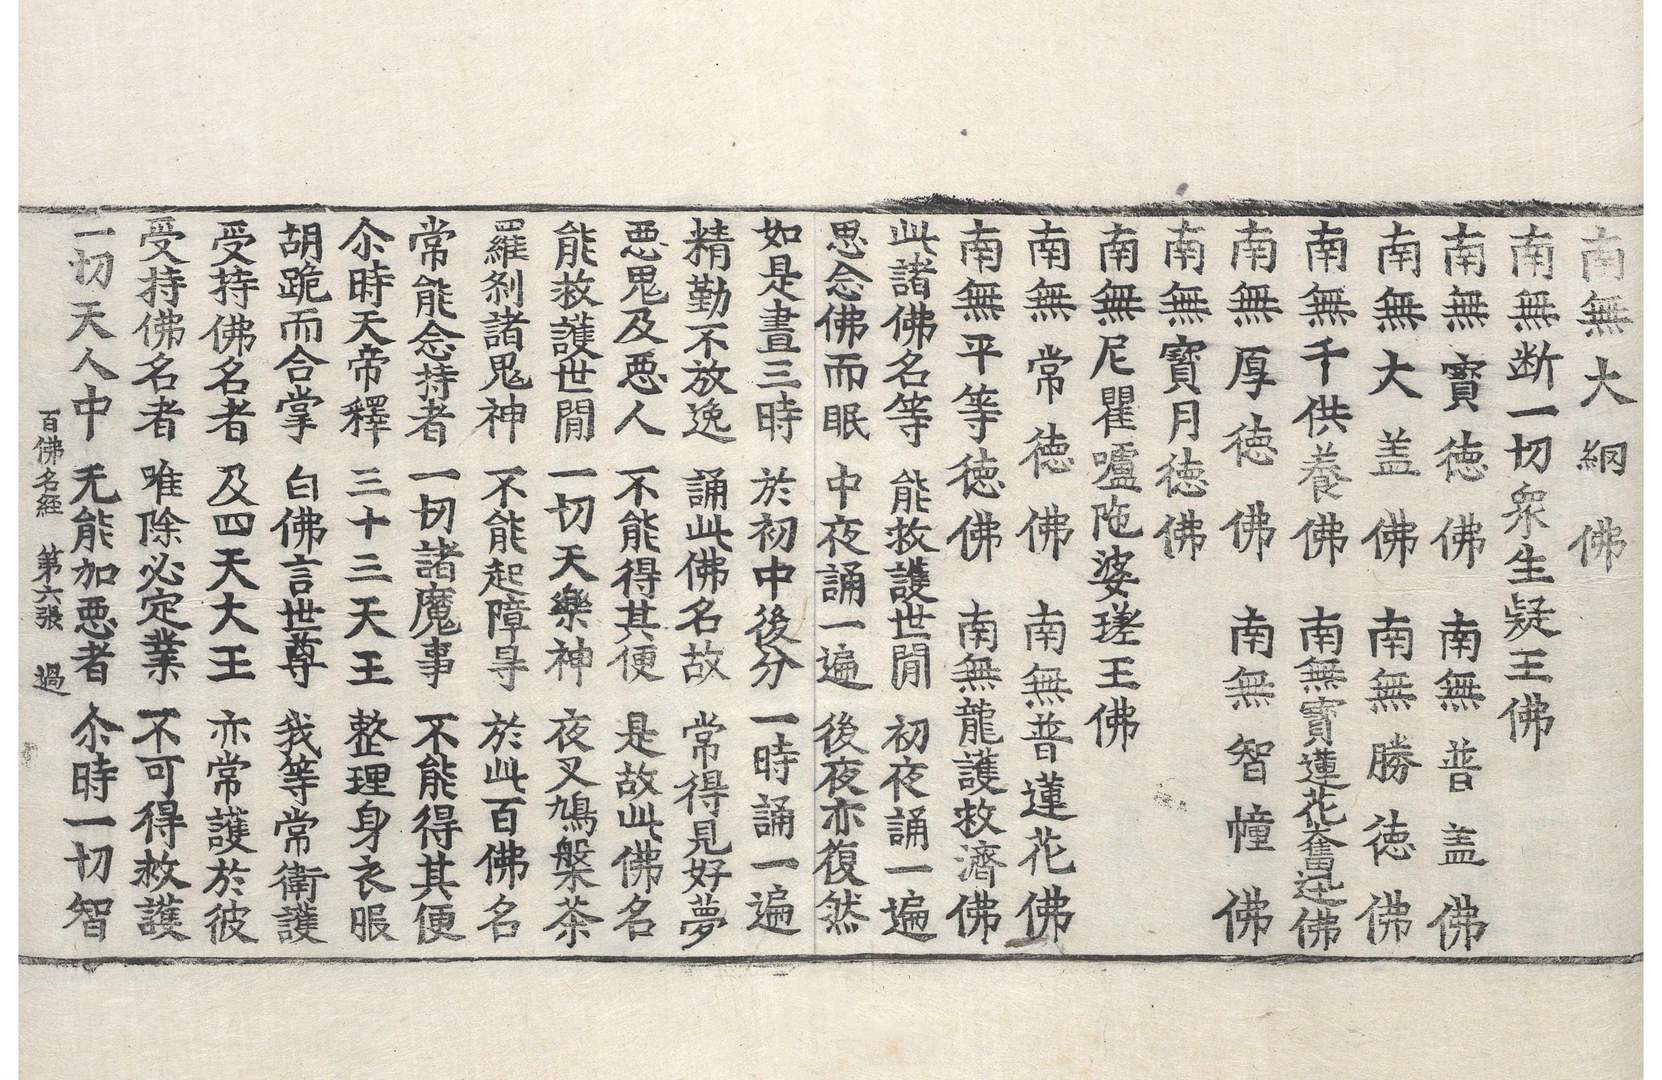 南無大網佛
南無断一切衆生疑王佛
南無寶德佛 南無普盖佛
南無大盖佛 南無勝德佛
南無千供養佛 南無寶蓮花奮迅佛
南無厚德佛 南無智幢佛
南無寶月德佛
南無尼瞿嚧陁婆瑳王佛
南無常德佛 南無普蓮花佛
南無平等德佛 南無龍護救濟佛
此諸佛名等 能救護世閒 初夜誦一遍
思念佛而眠 中夜誦一遍 後夜亦復然
如是晝三時 於初中後分 一時誦一遍
精勤不放逸 誦此佛名故 常得見好夢
惡鬼及惡人 不能得其便 是故此佛名
能救護世閒 一切天樂神 夜叉鳩槃茶
羅剎諸鬼神 不能起障㝵 於此百佛名
常能念持者 一切諸魔事 不能得其便
尒時天帝釋 三十三天王 整理身衣服
胡跪而合掌 白佛言世尊 我等常衛護
受持佛名者 及四天大王 亦常護於彼
受持佛名者 唯除必定業 不可得救護
一切天人中 无能加惡者 尒時一切智
百佛名經 第六張 過